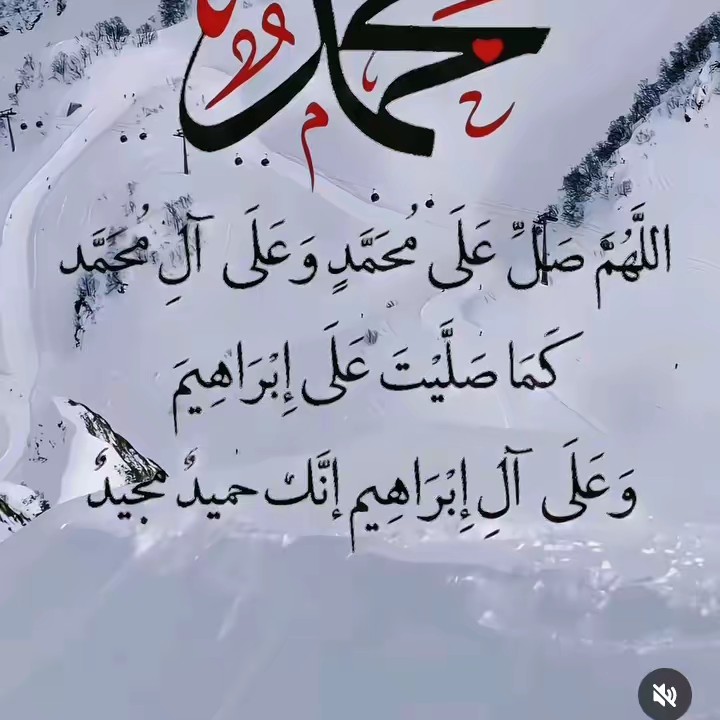 محمد
اللَّهُمَّ صَلِّ عَلَى مُحَمَّدٍ وَعَلَى آلِ مُحَمَّد
كَمَا صَلَّيْتَ عَلَى إِبْرَاهِيمَ
وَعَلَى آلِ إِبْرَاهِيم إِنَّكَ حَمِيدٌ مَجِيدٌ